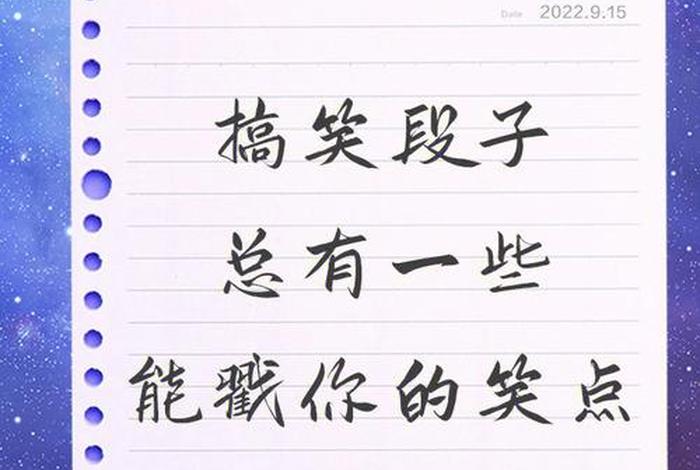 Date 2022.9.15
搞笑段子
总有一些
能戳你的笑点